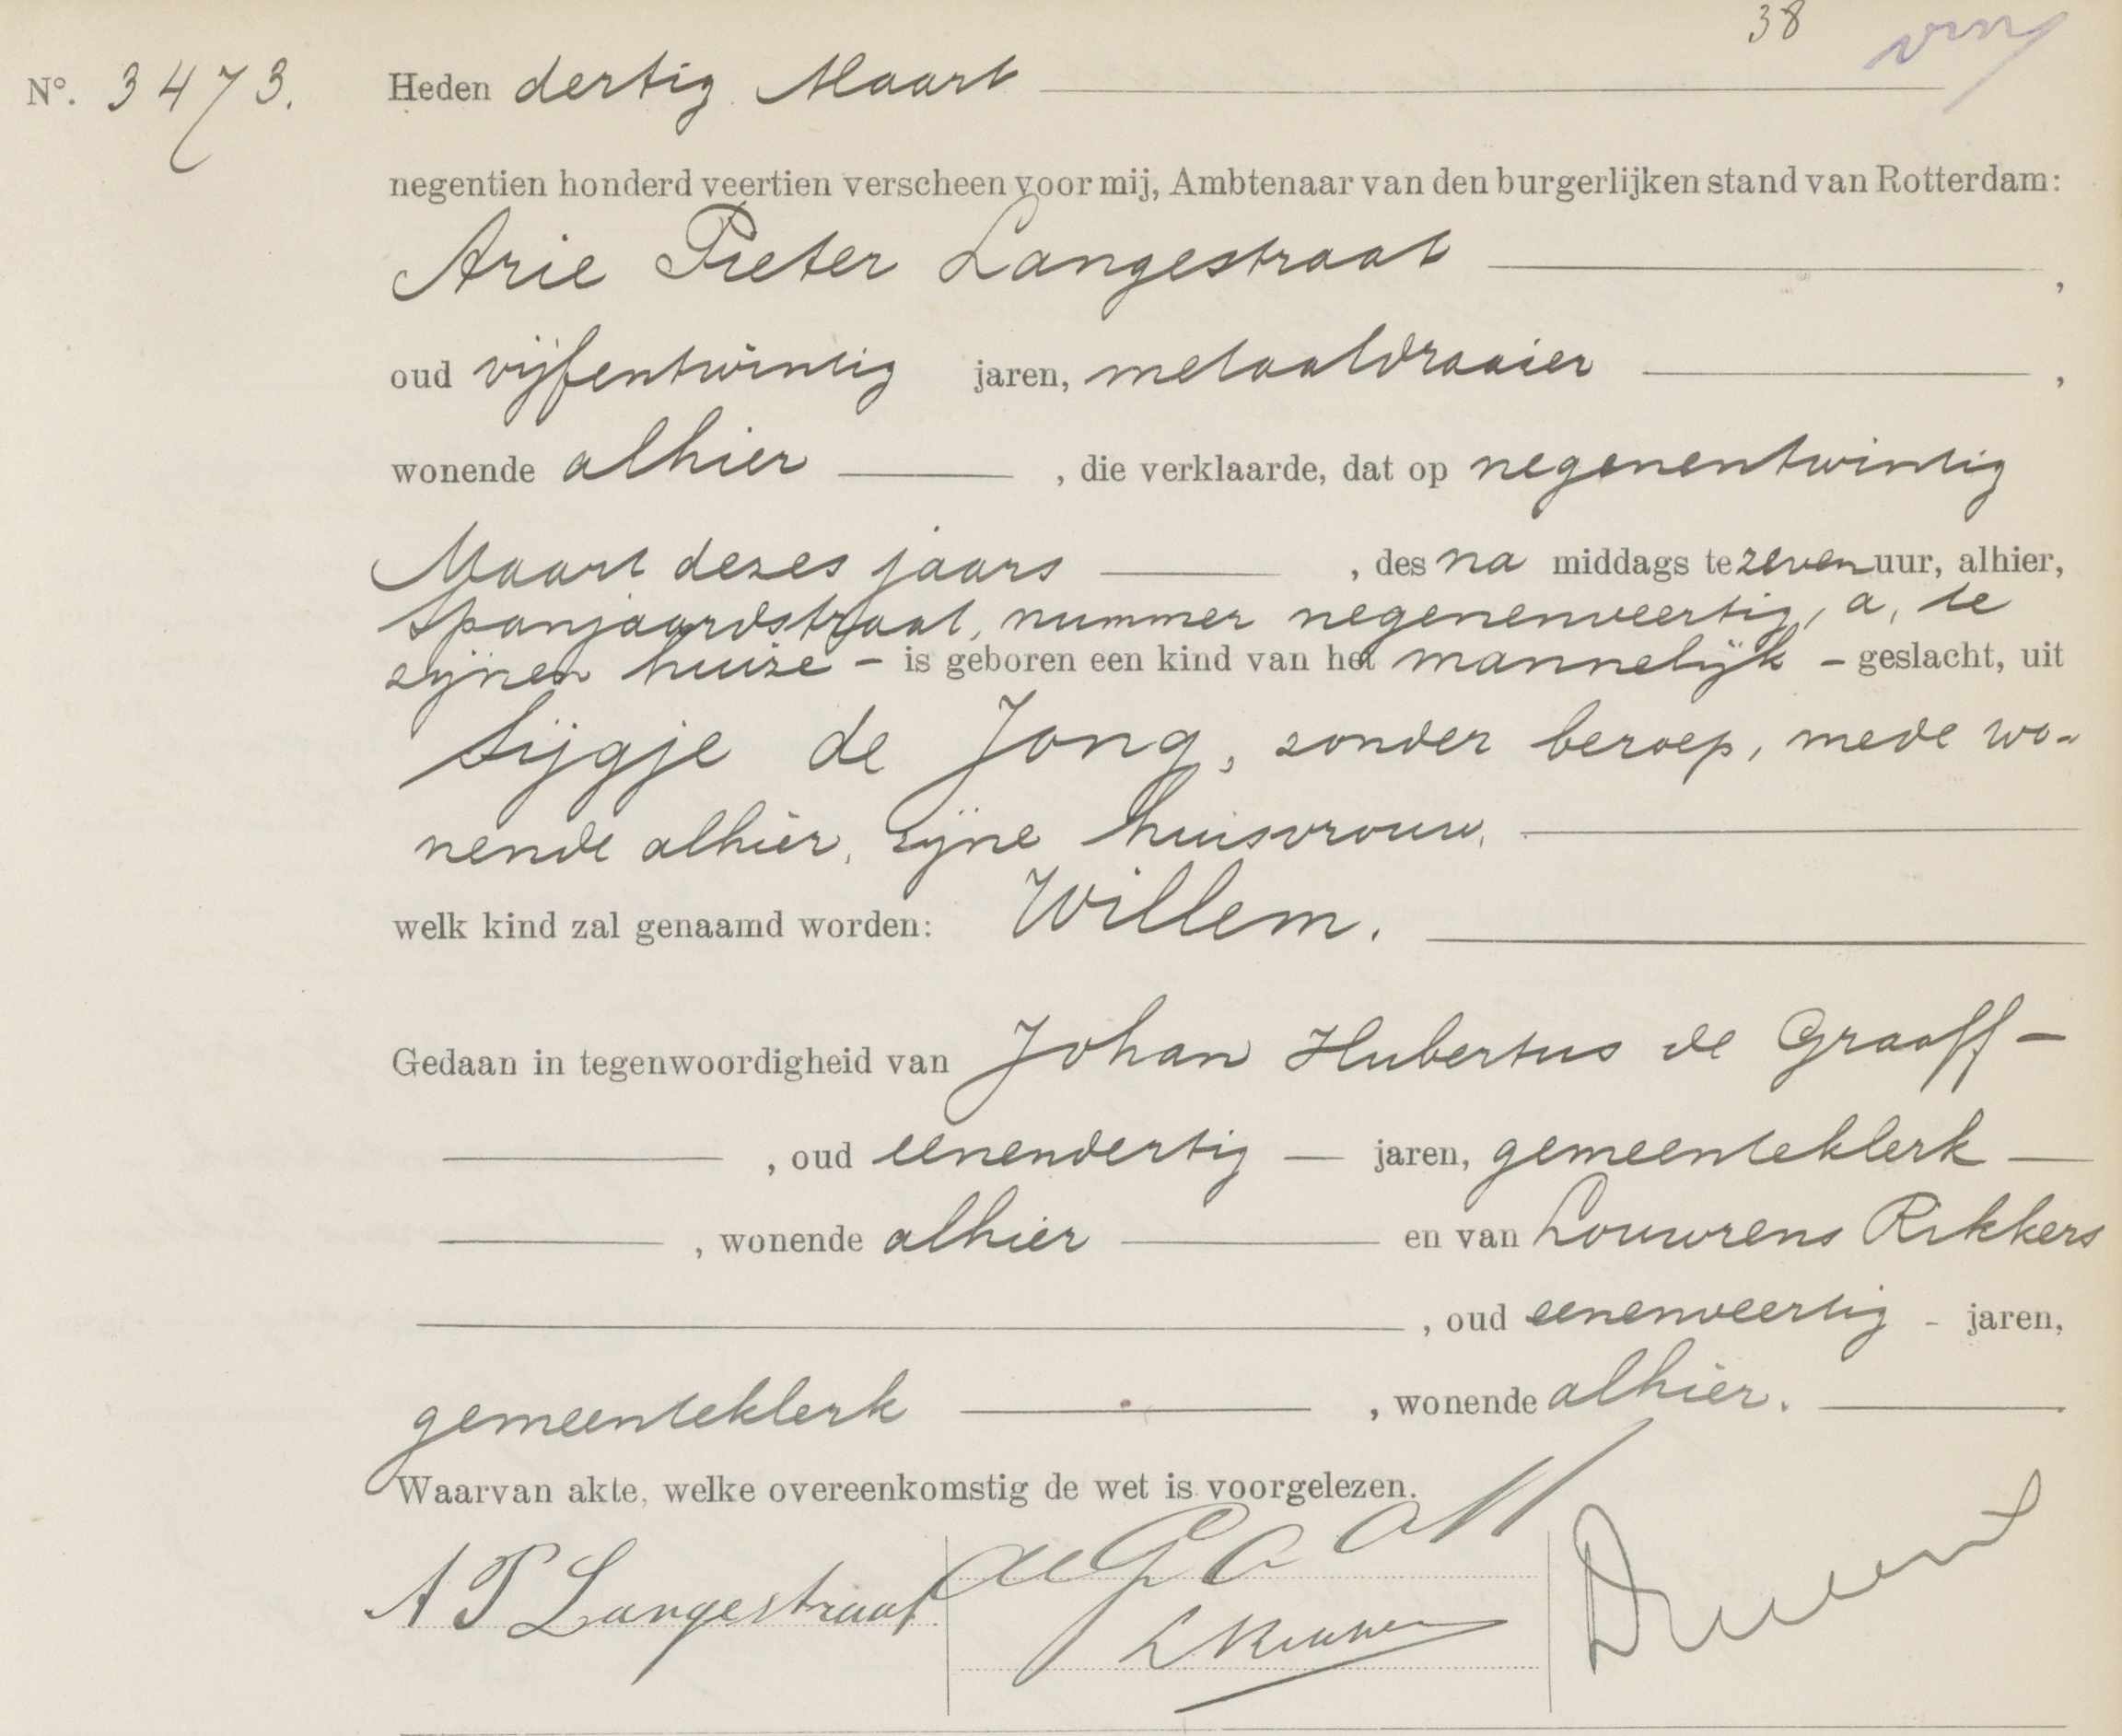 38
Nº. 3473. Heden dertig Maart
negentien honderd veertien verscheen voor mij, Ambtenaar van den burgerlijken stand van Rotterdam:
Arie Pieter Langestraat ,
oud vijfentwintig jaren, metaaldraaier ,
wonende alhier , die verklaarde, dat op negenentwintig
Maart dezes jaars , des na middags te zeven uur, alhier,
Spanjaardstraat, nummer negenenveertig, a, te
zijnen huize – is geboren een kind van het mannelijk – geslacht, uit
Sijgje de Jong, zonder beroep, mede wo-
nende alhier, zijne huisvrouw.
welk kind zal genaamd worden: Willem.
Gedaan in tegenwoordigheid van Johan Hubertus de Graaff –
, oud eenendertig — jaren, gemeenteklerk —
, wonende alhier en van Louwrens Rikkers
, oud eenenveertig - jaren,
gemeenteklerk , wonende alhier.
Waarvan akte, welke overeenkomstig de wet is voorgelezen.
A P Langestraat de Graaff
L Rikkers